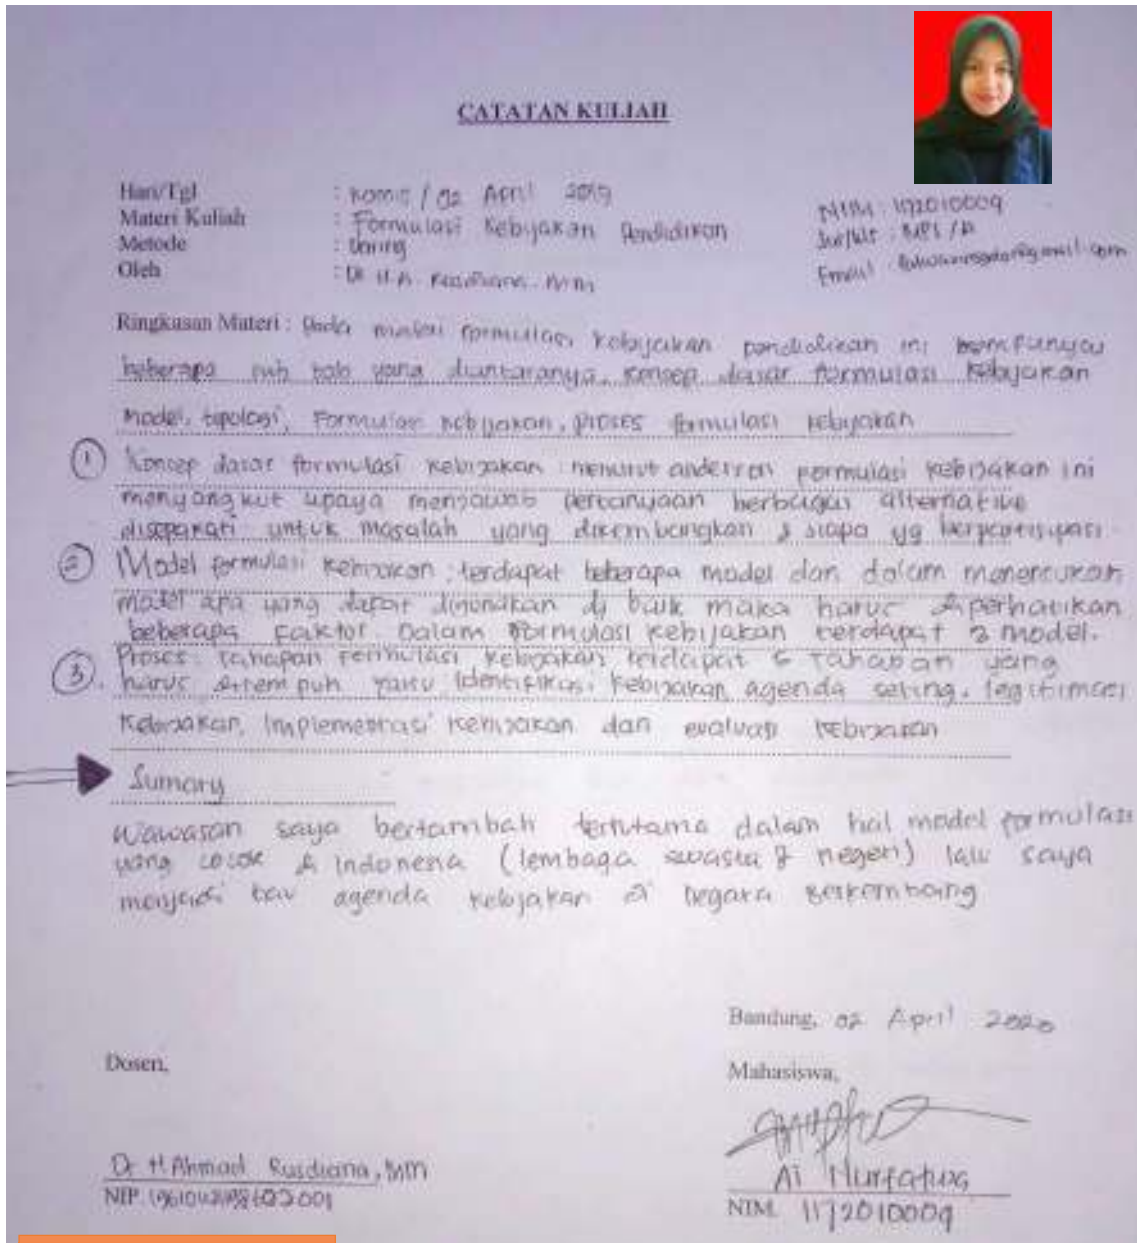 CATATAN KULIAH
Hari/Tgl : Kamis / 02 April 2019
Materi Kuliah : Formulasi Kebijakan Pendidikan
Metode : Daring
Oleh : Dr H.A. Rusdiana. MM
NIM : 1172010009
Jur/kls : MPI /A
Email : @gmail.com
Ringkasan Materi : Pada materi formulasi kebijakan pendidikan ini mempunyai
beberapa sub bab yang diantaranya, konsep dasar formulasi kebijakan
model, topologi, Formulasi kebijakan, proses formulasi kebijakan
① Konsep dasar formulasi kebijakan : menurut anderson formulasi kebijakan ini
menyangkut upaya menjawab pertanyaan berbagai alternative
disepakati untuk masalah yang dikembangkan & siapa yg berpartisipasi.
② Model formulasi kebijakan : terdapat beberapa model dan dalam menentukan
model apa yang dapat digunakan dg baik maka harus diperhatikan
beberapa faktor. Dalam formulasi kebijakan terdapat model.
③. Proses tahapan formulasi kebijakan terdapat tahapan yang
harus ditempuh yaitu Identifikasi kebijakan, agenda seting, legitimasi
kebijakan, Implementasi kebijakan dan evaluasi kebijakan
Sumary
Wawasan saya bertambah terutama dalam hal model formulasi
yang cocok di Indonesia (lembaga swasta & negeri) lalu saya
menjadi tau agenda kebijakan di negara berkembang
Bandung, 02 April 2020
Dosen,
Mahasiswa,
Dr H Ahmad Rusdiana, MM
NIP.
Ai
NIM. 1172010009